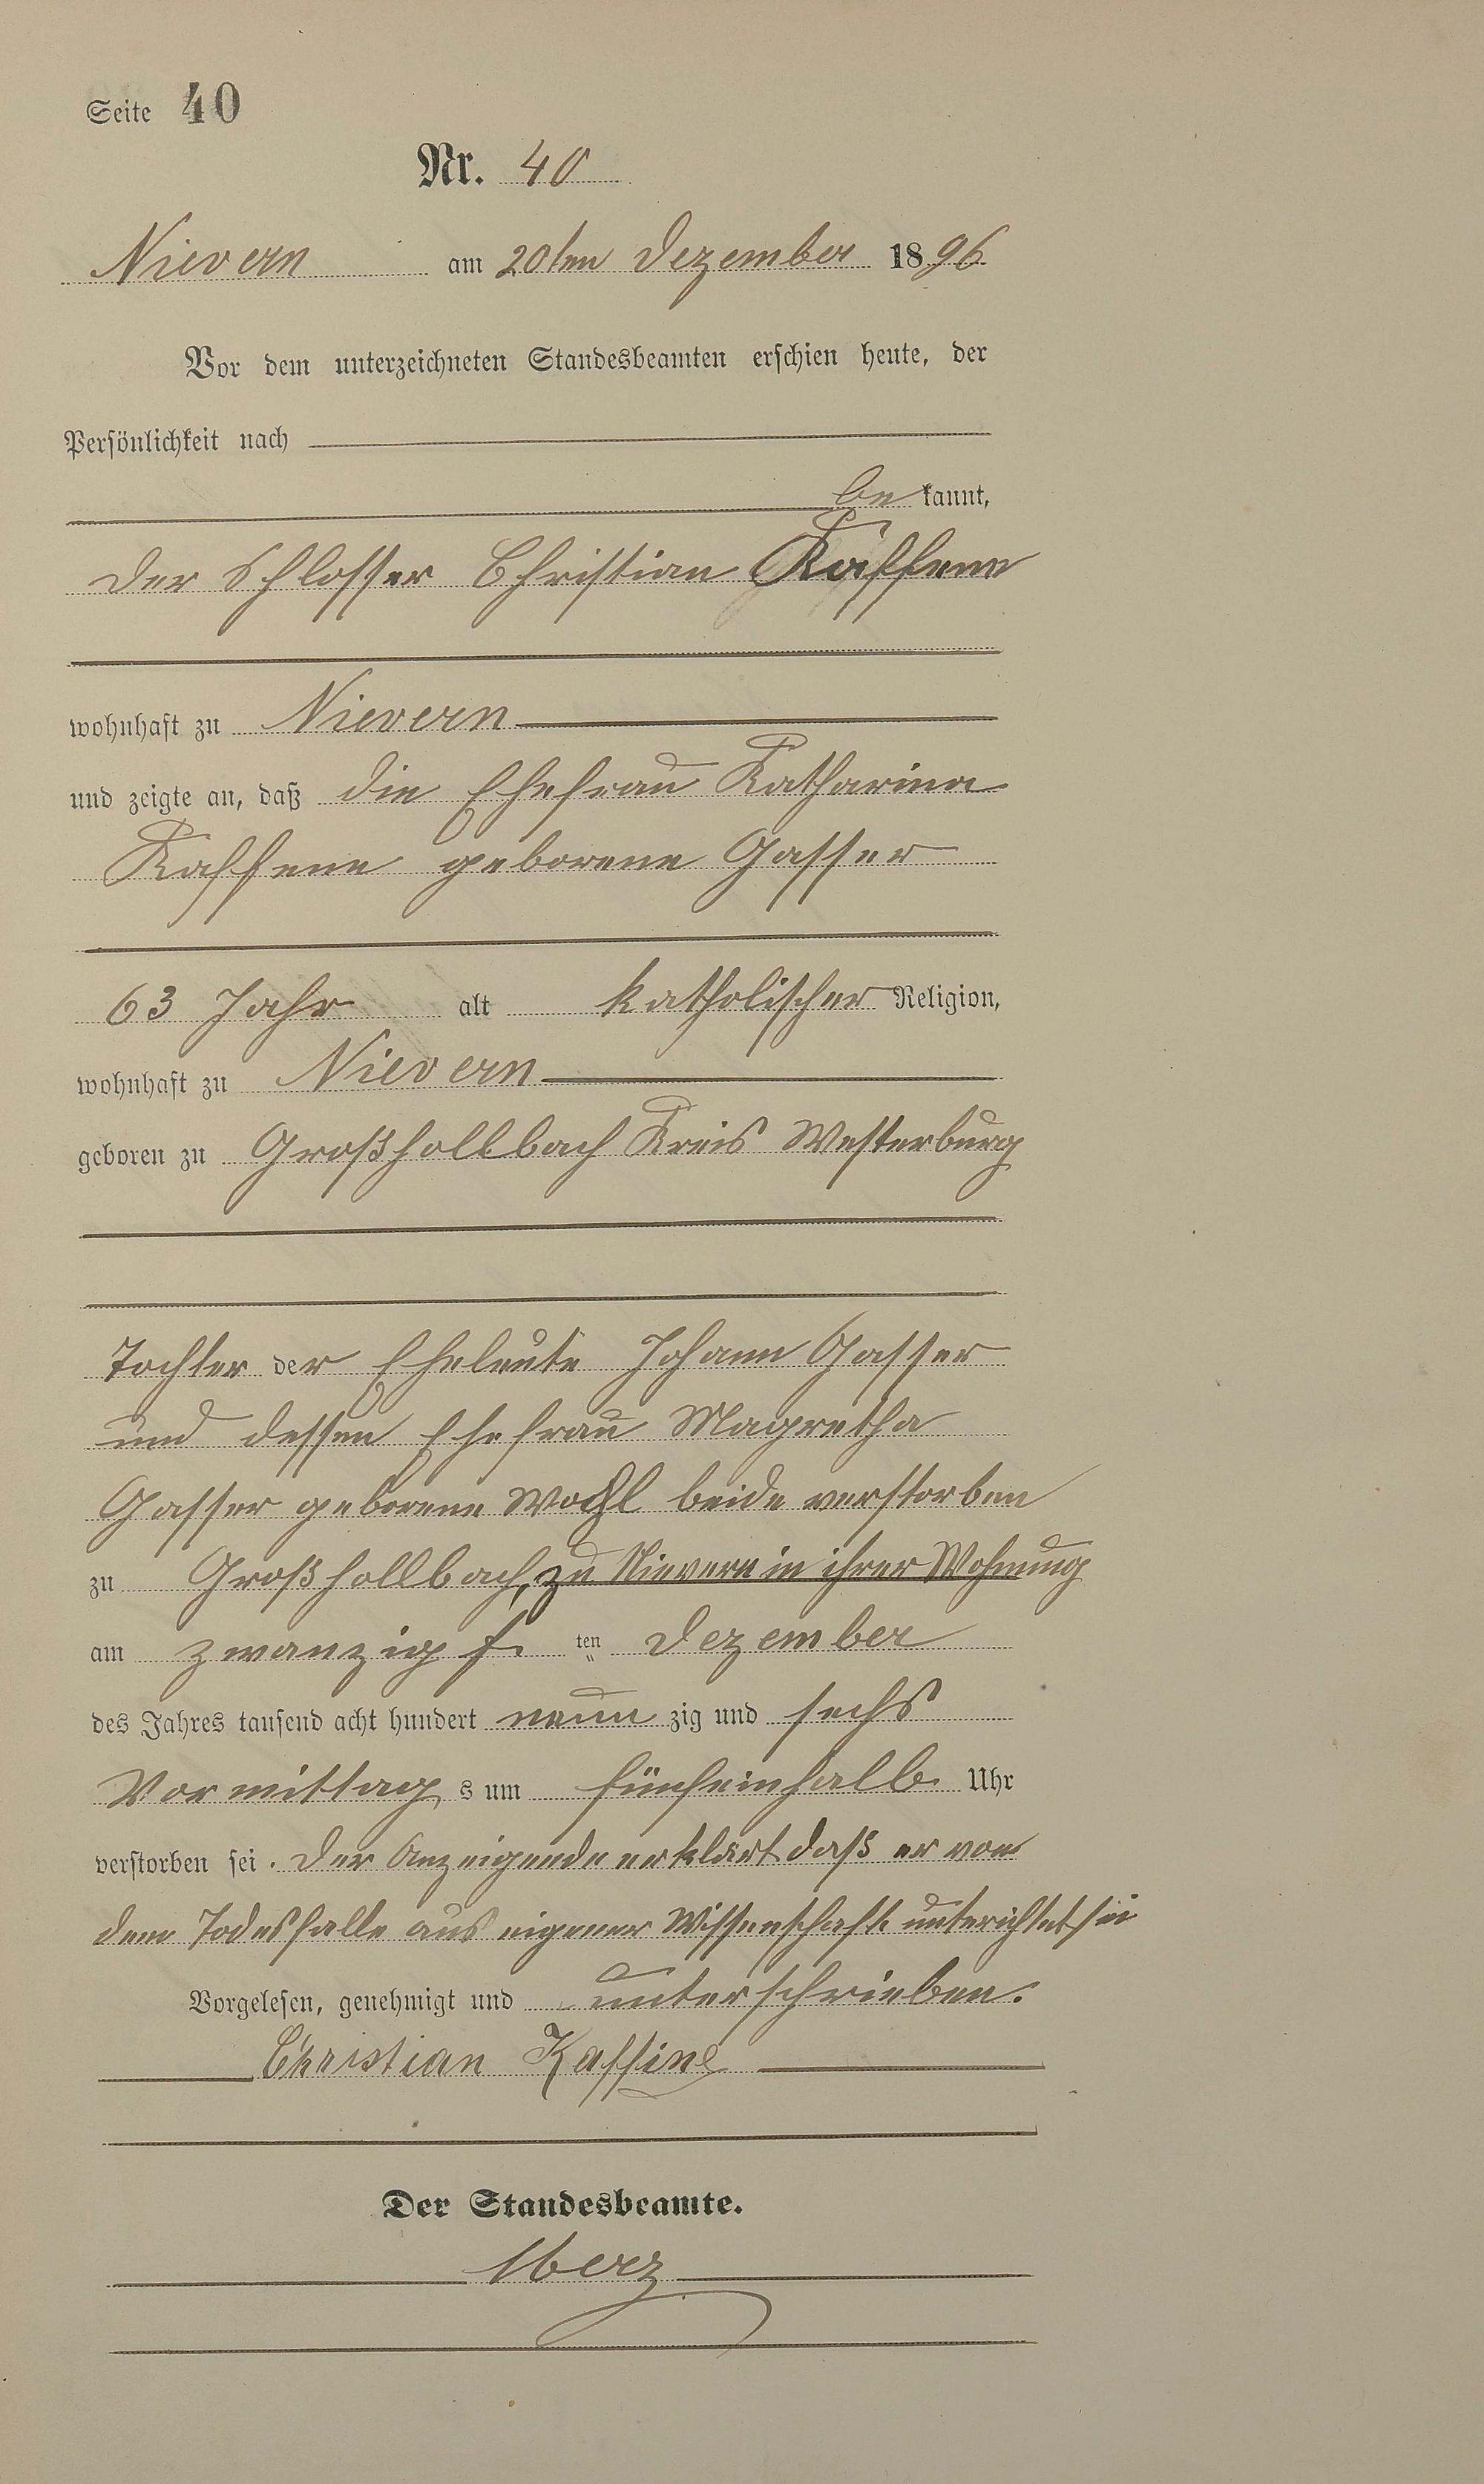 Seite 40
Nr. 40
Nievern am 20ten Dezember 1896
Vor dem unterzeichneten Standesbeamten erschien heute, der
Persönlichkeit nach
be kannt,
der Schlosser Christian Kaffene
wohnhaft zu Nievern
und zeigte an, daß die Ehefrau Katharina
Kaffene geborene Gasser
63 Jahr alt katholischer Religion,
wohnhaft zu Nievern
geboren zu Großhollbach Kreis Westerburg
Tochter der Eheleute Johann Gasser
und dessen Ehefrau Magretha
Gasser geborene beide verstorben
zu Großhollbach, zu Nievern in ihrer Wohnung
am zwanzigs. ten Dezember
des Jahres tausend acht hundert neun zig und sechs
Vor mittag s um fünfeinhalb Uhr
verstorben sei. Der Anzeigende erklärt daß er von
dem Todesfalle aus eigener Wissenschaft unterichtet sei
Vorgelesen, genehmigt und unterschrieben.
Christian Kaffine
Der Standesbeamte.